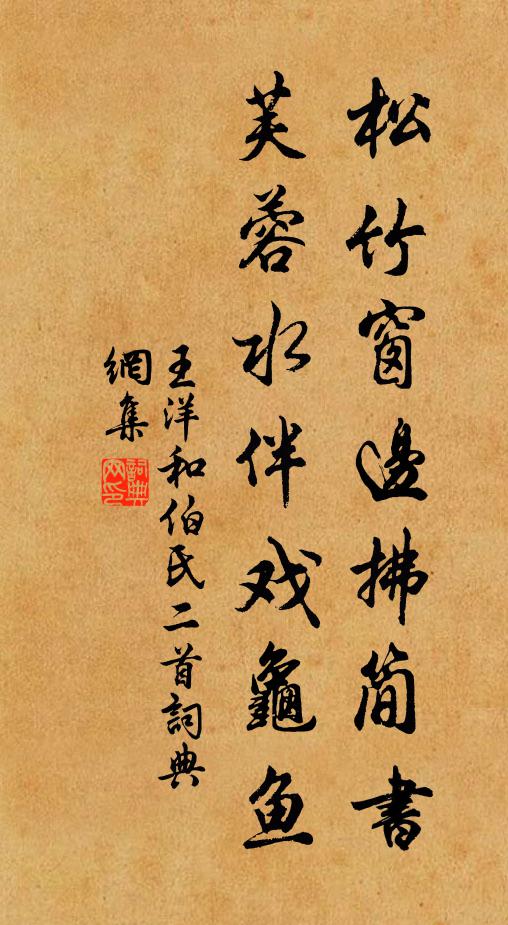 松竹窗邊拂简書
芙蓉水伴戏龜鱼
王洋和伯氏二首詞典
網集
詞典网印